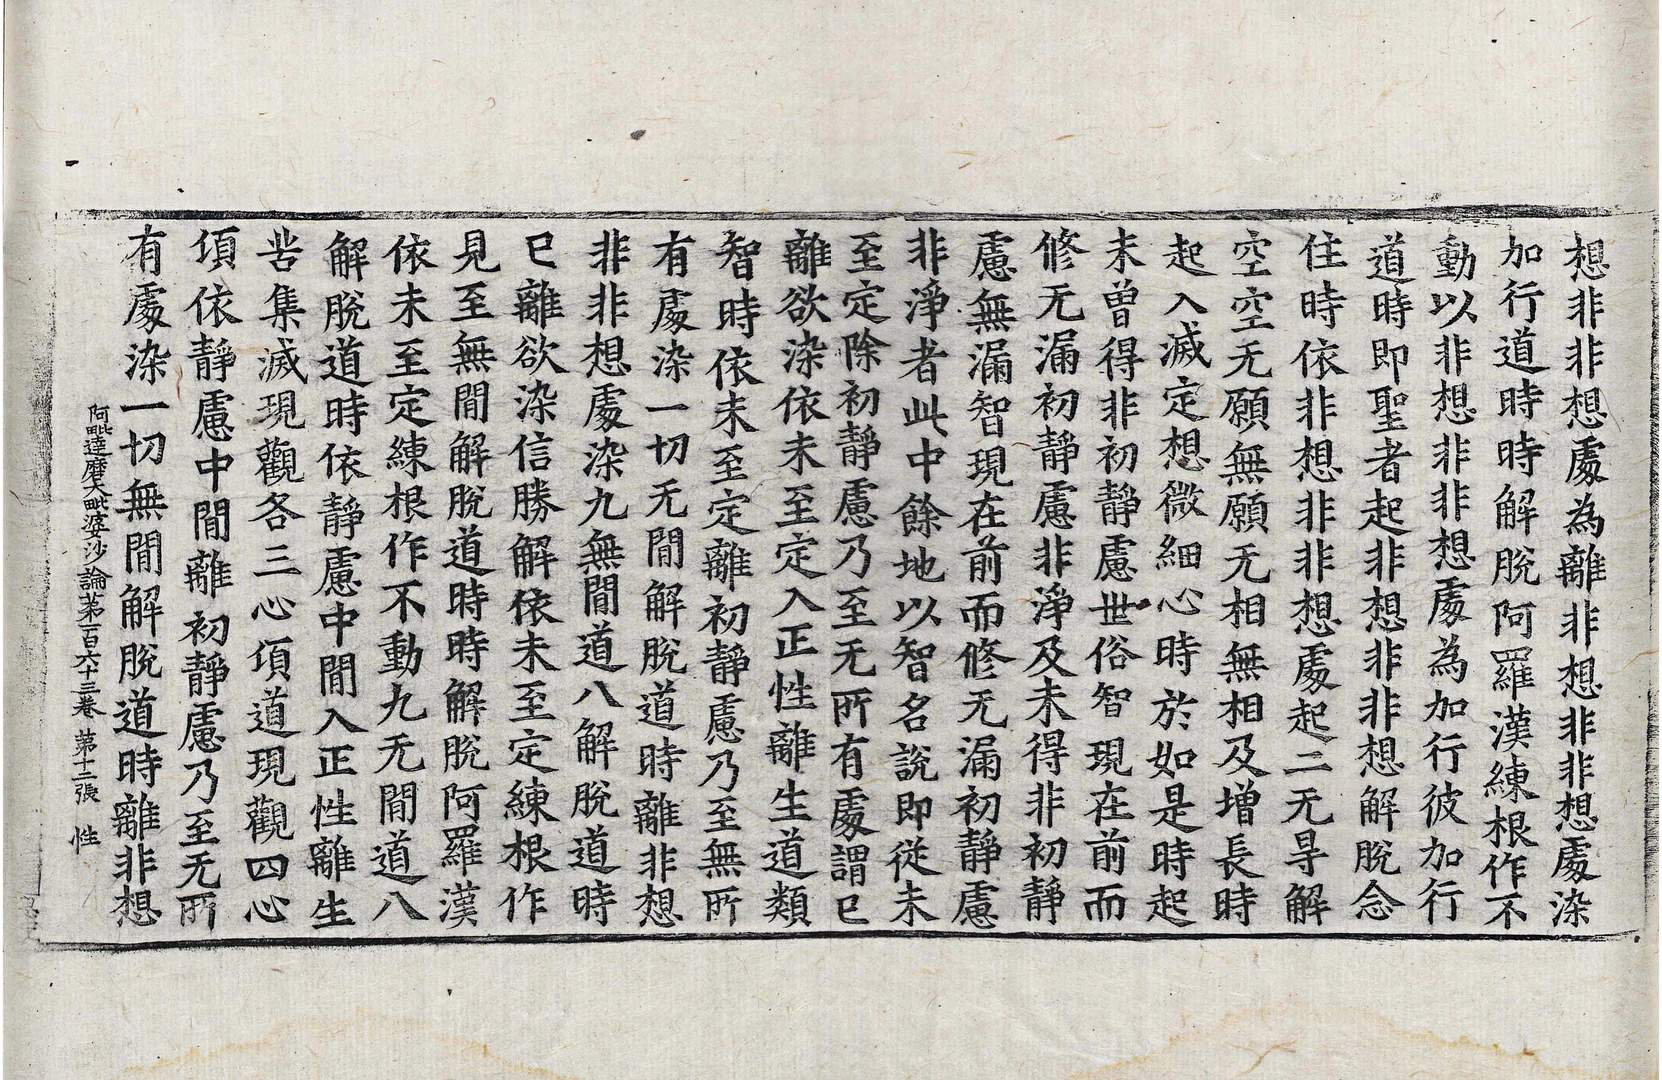 想非非想處為離非想非非想處染
加行道時時解脫阿羅漢練根作不
動以非想非非想處為加行彼加行
道時即聖者起非想非非想解脫念
住時依非想非非想處起二无㝵解
空空无願無願无相無相及增長時
起入滅定想微細心時於如是時起
未曾得非初靜慮世俗智現在前而
修无漏初靜慮非淨及未得非初靜
慮無漏智現在前而修无漏初靜慮
非淨者此中餘地以智名說即從未
至定除初靜慮乃至无所有處謂已
離欲染依未至定入正性離生道類
智時依未至定離初靜慮乃至無所
有處染一切无間解脫道時離非想
非非想處染九無間道八解脫道時
已離欲染信勝解依未至定練根作
見至無間解脫道時時解脫阿羅漢
依未至定練根作不動九无間道八
解脫道時依靜慮中間入正性離生
苦集滅現觀各三心頃道現觀四心
頃依靜慮中間離初靜慮乃至无所
有處染一切無間解脫道時離非想
阿毗達磨大毗婆沙論第一百六十三卷 第十二張 性